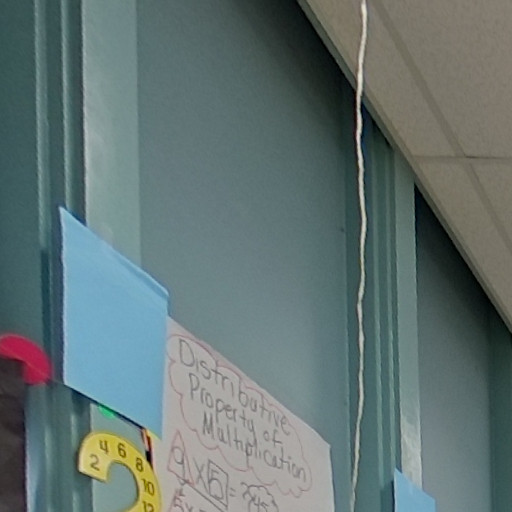 Distributive
Property of
Multiplication
9 x 5 = 45
2 4 6 8 10 12